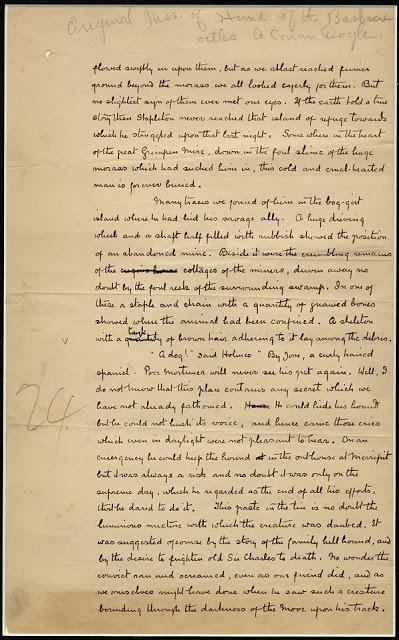 Original Mss. of Hound of the Baskervilles A Conan Doyle.
flowed swiftly in upon them, but as we at last reached firmer
ground beyond the morass we all looked eagerly for them. But
no slightest sign of them ever met our eyes. If the earth told a true
story then Stapleton never reached that island of refuge towards
which he struggled upon that last night. Somewhere in the heart
of the great Grimpen Mire, down in the foul slime of the huge
morass which had sucked him in, this cold and cruel-hearted
man is for ever buried.
Many traces we found of him in the bog-girt
island where he had hid his savage ally. A huge driving
wheel and a shaft half filled with rubbish showed the position
of an abandoned mine. Beside it were the crumbling remains
of the cottages of the miners, driven away no
doubt by the foul reek of the surrounding swamp. In one of
these a staple and chain with a quantity of gnawed bones
showed where the animal had been confined. A skeleton
with a tangle of brown hair adhering to it lay among the debris.
"A dog!" said Holmes "By Jove, a curly haired
spaniel. Poor Mortimer will never see his pet again. Well, I
do not know that this place contains any secret which we
have not already fathomed. He could hide his hound
but he could not hush its voice, and hence came those cries
which even in daylight were not pleasant to hear. On an
emergency he could keep the hound in the outhouse at Merripit
but it was always a risk and no doubt it was only on the
supreme day, which he regarded as the end of all his efforts,
that he dared to do it. This paste in the tin is no doubt the
luminous mixture with which the creature was daubed. It
was suggested of course by the story of the family hell hound, and
by the desire to frighten old Sir Charles to death. No wonder the
convict ran and screamed, even as our friend did, and as
we ourselves might have done when he saw such a creature
bounding through the darkness of the Moor upon his track.
24.